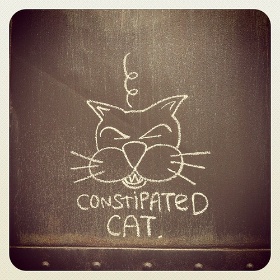 CONSTIPATED
CAT.